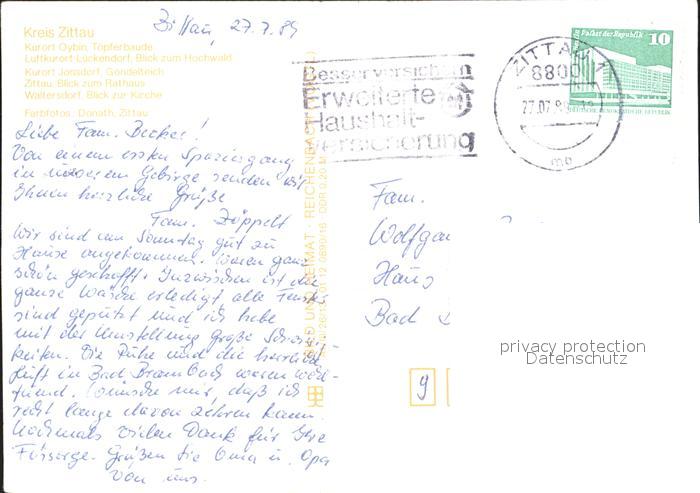 Zittau, 27.7.89
Kreis Zittau
Kurort Oybin, Töpferbaude
Luftkurort Lückendorf, Blick zum Hochwald
Kurort Jonsdorf, Gondelteich
Zittau, Blick zum Rathaus
Waltersdorf, Blick zur Kirche
Farbfotos: Donath, Zittau
Liebe Fam. Becker!
Von einem ersten Spaziergang
in unserem Gebirge senden wir
Ihnen herzliche Grüße
Fam. Zöppelt
Wir sind am Sonntag gut zu
Hause angekommen. Waren ganz
schön geschafft. Inzwischen ist die
ganze Wäsche erledigt alle Fenster
sind geputzt und ich habe
mit der Umstellung große Schwierig-
keiten. Die Ruhe und die herrliche
Luft in Bad Brambach waren wohl-
tuend. Wünsche mir, daß ich
recht lange davon zehren kann.
Nochmals vielen Dank für Ihre
Fürsorge. Grüßen Sie Oma u. Opa
von uns.
BILD UND HEIMAT · REICHENBACH
DDR 0,20 M
Besser versichern
Erweiterte
Haushalt-
versicherung
ZITTAU 1
8800
27.07.89
mb
Palast der Republik 10
DEUTSCHE DEMOKRATISCHE REPUBLIK
Fam.
Wolfgan
Haus
Bad
9
privacy protection
Datenschutz